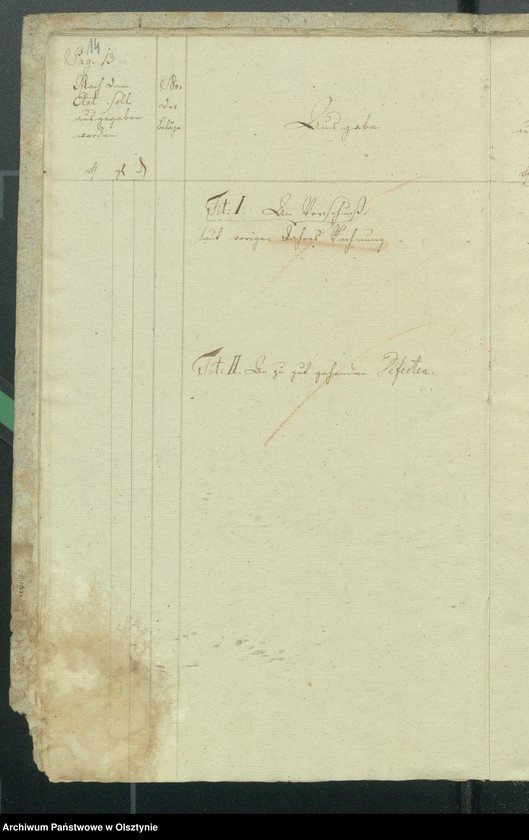 14
Pag. 13
Nach dem
Etat soll
ausgegeben
werden
Nro.
der
Beläge
Ausgabe
Tit: I. An Vorschuß
laut voriger Jahres Rechnung
Tit: II. An zu gut gehenden Defecten.
Archiwum Państwowe w Olsztynie